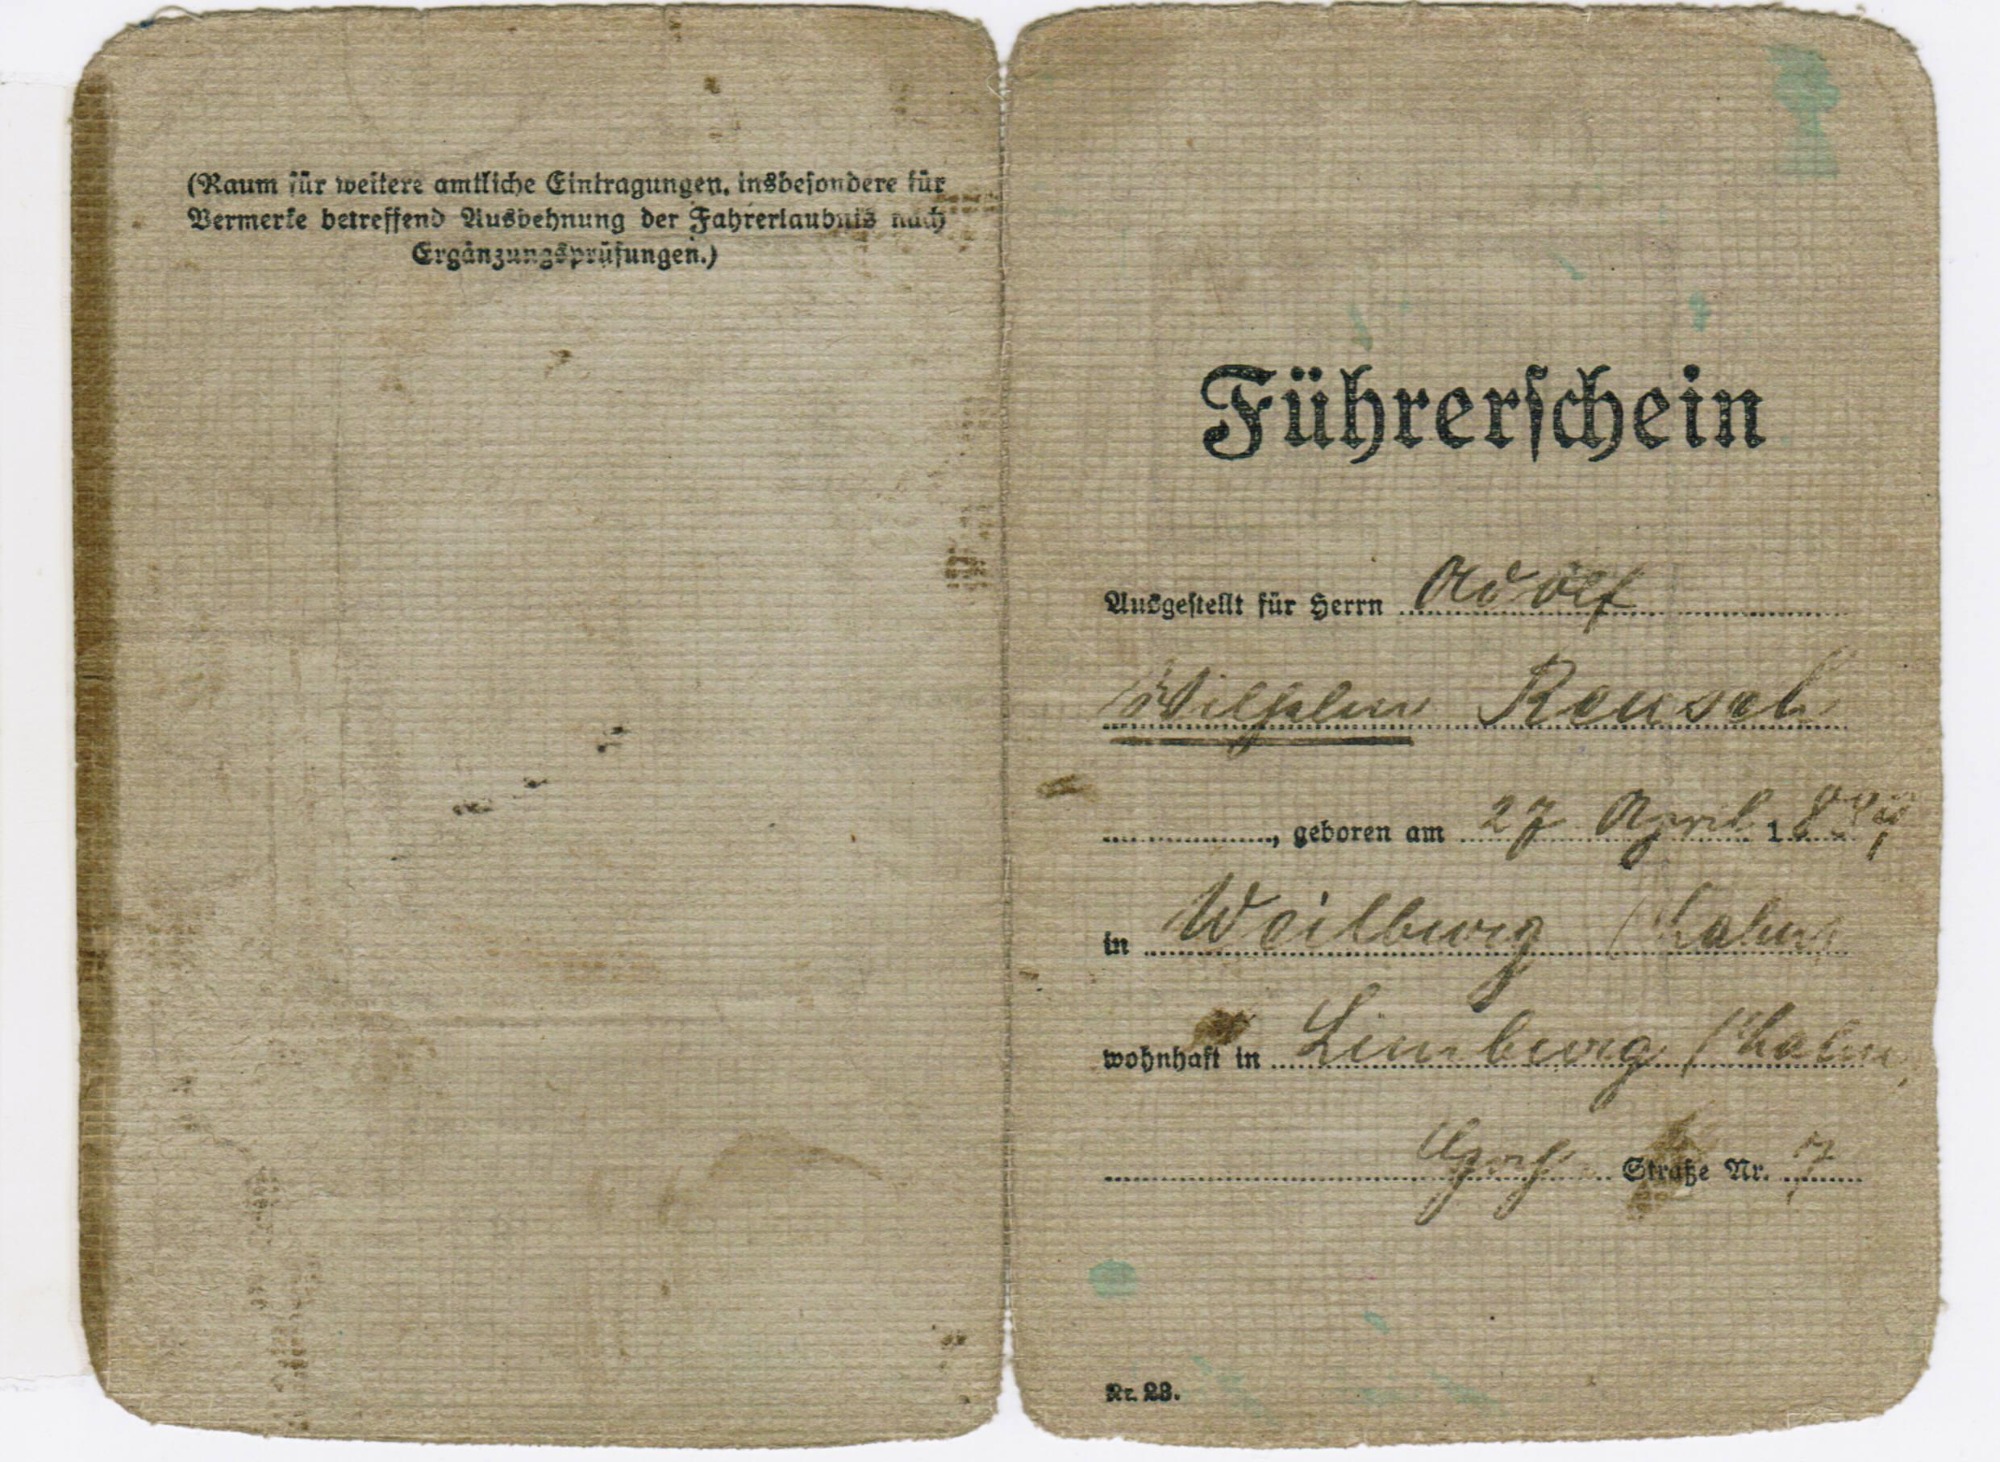 (Raum für weitere amtliche Eintragungen, insbesondere für
Vermerke betreffend Ausdehnung der Fahrerlaubnis nach
Ergänzungsprüfungen.)
Führerschein
Ausgestellt für Herrn Adolf
Wilhelm Reusch
, geboren am 27 April 1
in Weilburg / Lahn
wohnhaft in Limburg / Lahn
Straße Nr. 7
Nr. 23.